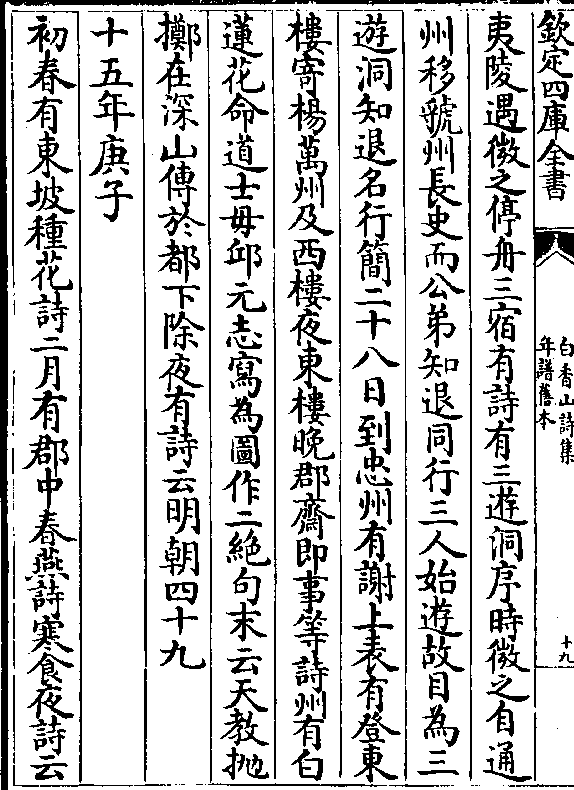 欽定四庫全書
白香山詩集
年譜舊本
十九
夷陵遇微之停舟三宿有詩有三遊洞序時微之自通
州移虢州長史而公弟知退同行三人始遊故目為三
遊洞知退名行簡二十八日到忠州有謝上表有登東
樓寄楊萬州及西樓夜東樓晚郡齋即事等詩州有白
蓮花命道士毋邱元志寫為圖作二絶句末云天教抛
擲在深山傳於都下除夜有詩云明朝四十九
十五年庚子
初春有東坡種花詩二月有郡中春燕詩寒食夜詩云